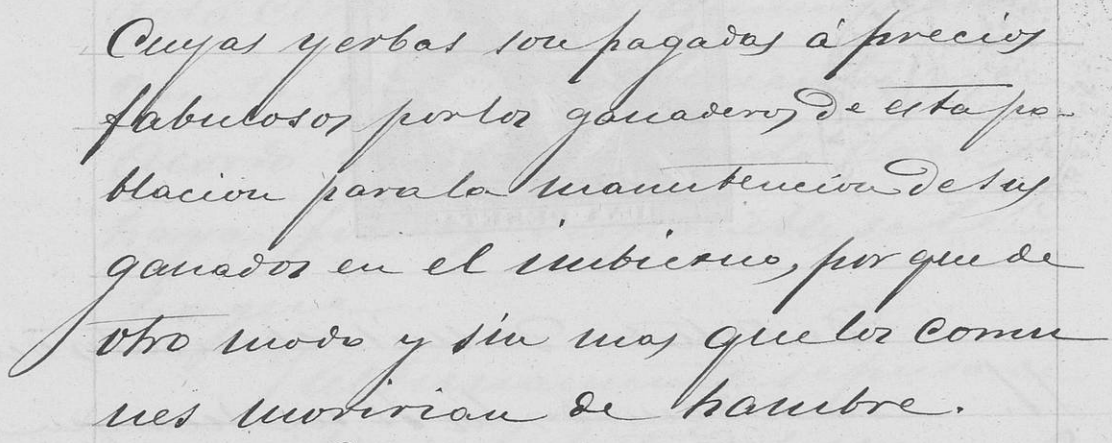 Cuyas yerbas son pagadas á precios
fabulosos por los ganaderos de esta po-
blacion para la manutencion de sus
ganados en el imbierno, por que de
otro modo y sin mas que los comu
nes moririan de hambre.